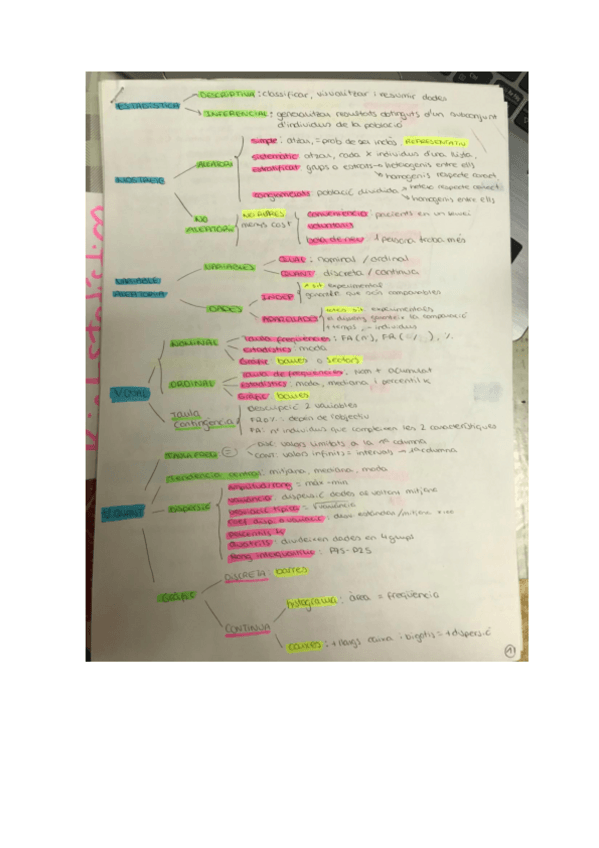 DESCRIPTIVA: classificar, visualitzar i resumir dades
ESTADÍSTICA
INFERENCIAL: generalitzar resultats obtinguts d'un subconjunt
d'individus de la població
simple: atzar, = prob de ser inclòs. REPRESENTATIU
sistemàtic: atzar, cada X individus d'una llista.
ALEATORI
estratificat: grups o estrats → heterogenis entre ells
homogenis respecte
MOSTREIG
conglomerats: població dividida
homogenis entre ells
NO ALEATORI
menys cost
conveniència: pacients en un
voluntaris
bola de neu: 1 persona troba més
VARIABLES
QUAL: nominal / ordinal
QUANT: discreta / contínua
VARIABLE ALEATÒRIA
DADES
INDEP
experimental
que són comparables
APARELLADES
experimentals
la comparació
temps individus
NOMINAL
taula freqüències: FA (n), FR ( ), %
estadístics: moda
Gràfic: barres o sectors
V. QUAL
ORDINAL
taula de freqüències: + acumulat
estadístics: moda, mediana i percentils
Gràfic: barres
Taula Contingència
descripció 2 variables
FR o %: depèn de l'objectiu
FA: nº individus que compleixen les 2 característiques
TAULA FREQ
valors limitats a la 1ª columna
CONT: valors infinits = intervals → 1ª columna
Tendència central: mitjana, mediana, moda
V. QUANT
DISPERSIÓ
Amplitud/rang = màx - min
variància: dispersió dades
desviació típica = √variància
Percentils
Quartils: divideixen dades en 4 grups
Rang interquartílic: P75 - P25
GRÀFIC
DISCRETA: barres
histograma: àrea = freqüència
CONTINUA
caixes: + llargs caixa i bigotis = + dispersió
1